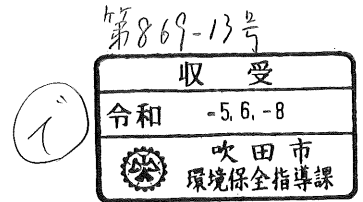 第869-13号
収受
令和 -5.6.-8
吹田市
環境保全指導課